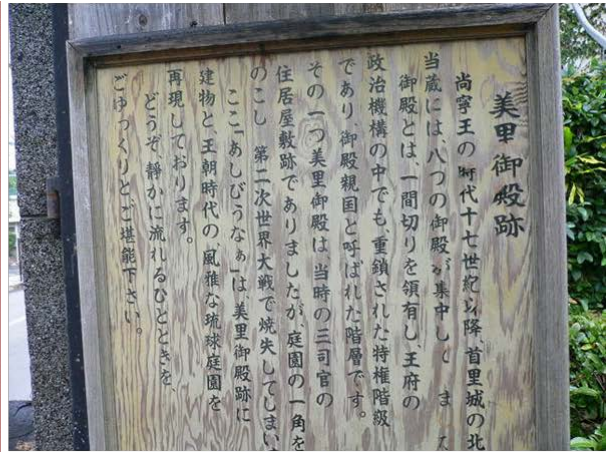 美里御殿跡
尚寧王の時代十七世紀以降、首里城の北
当蔵には、八つの御殿が集中して
御殿とは、一間切りを領有し、王府の
政治機構の中でも、重鎖された特権階級
であり、御殿親国と呼ばれた階層です。
その一つ美里御殿は、当時の三司官の
住居屋敷跡でありましたが、庭園の一角を
のこし 第二次世界大戦で焼失してしまい
ここ「あしびうなぁ」は、美里御殿跡に
建物と、王朝時代の、風雅な琉球庭園を
再現しております。
どうぞ、静かに流れるひとときを、
ごゆっくりとご堪能下さい。